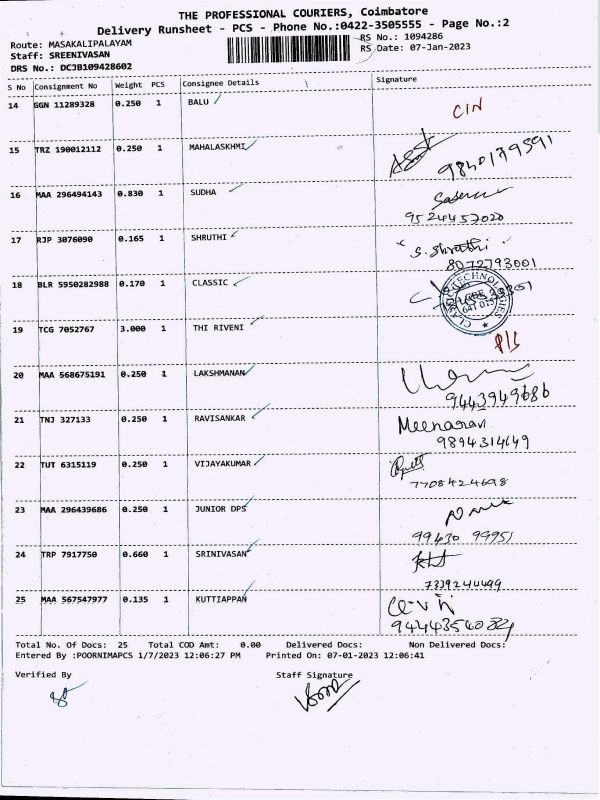 THE PROFESSIONAL COURIERS, Coimbatore
Delivery Runsheet - PCS - Phone No.:0422-3505555 - Page No.:2
Route: MASAKALIPALAYAM
RS No.: 1094286
Staff: SREENIVASAN
RS Date: 07-Jan-2023
DRS No.: DCJB109428602
S No Consignment No Weight PCS Consignee Details Signature
14 GGN 11289328 0.250 1 BALU CIN
15 TRZ 190012112 0.250 1 MAHALASKHMI
9840179591
16 MAA 296494143 0.830 1 SUDHA
9524457020
17 RJP 3076090 0.165 1 SHRUTHI S. Shruthi
8072793001
18 BLR 5950282988 0.170 1 CLASSIC
19 TCG 7052767 3.000 1 THI RIVENI
20 MAA 568675191 0.250 1 LAKSHMANAN
9443949686
21 TNJ 327133 0.250 1 RAVISANKAR
9894314149
22 TUT 6315119 0.250 1 VIJAYAKUMAR
7708424698
23 MAA 296439686 0.250 1 JUNIOR DPS
99430 99951
24 TRP 7917750 0.660 1 SRINIVASAN
7339244499
25 MAA 567547977 0.135 1 KUTTIAPPAN
Total No. Of Docs: 25 Total COD Amt: 0.00 Delivered Docs: Non Delivered Docs:
Entered By :POORNIMAPCS 1/7/2023 12:06:27 PM Printed On: 07-01-2023 12:06:41
Verified By Staff Signature